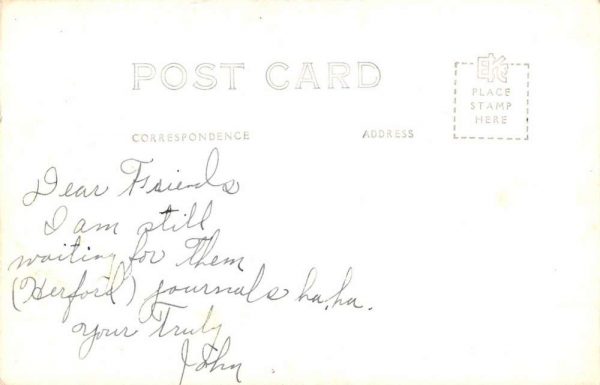 POST CARD
EKC
PLACE
STAMP
HERE
CORRESPONDENCE ADDRESS
Dear Friends
I am still
waiting for them
(Herford) journals ha, ha.
your Truly
John